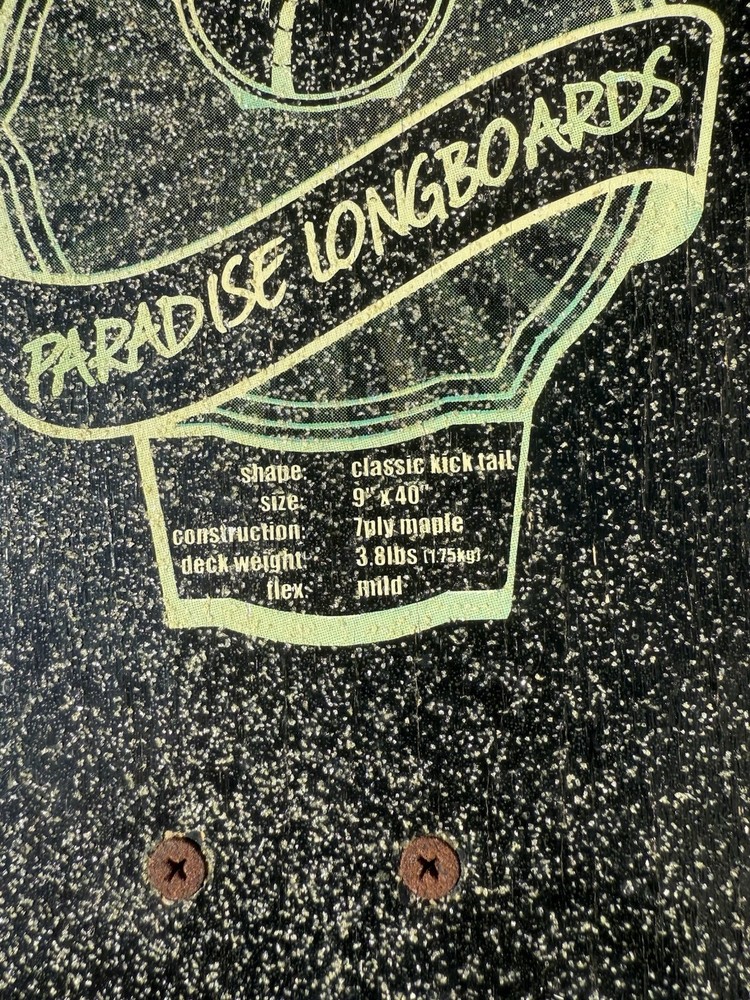 PARADISE LONGBOARDS
shape: classic kick tail
size: 9" x 40"
construction: 7ply maple
deck weight: 3.8lbs (1.75kg)
flex: mild